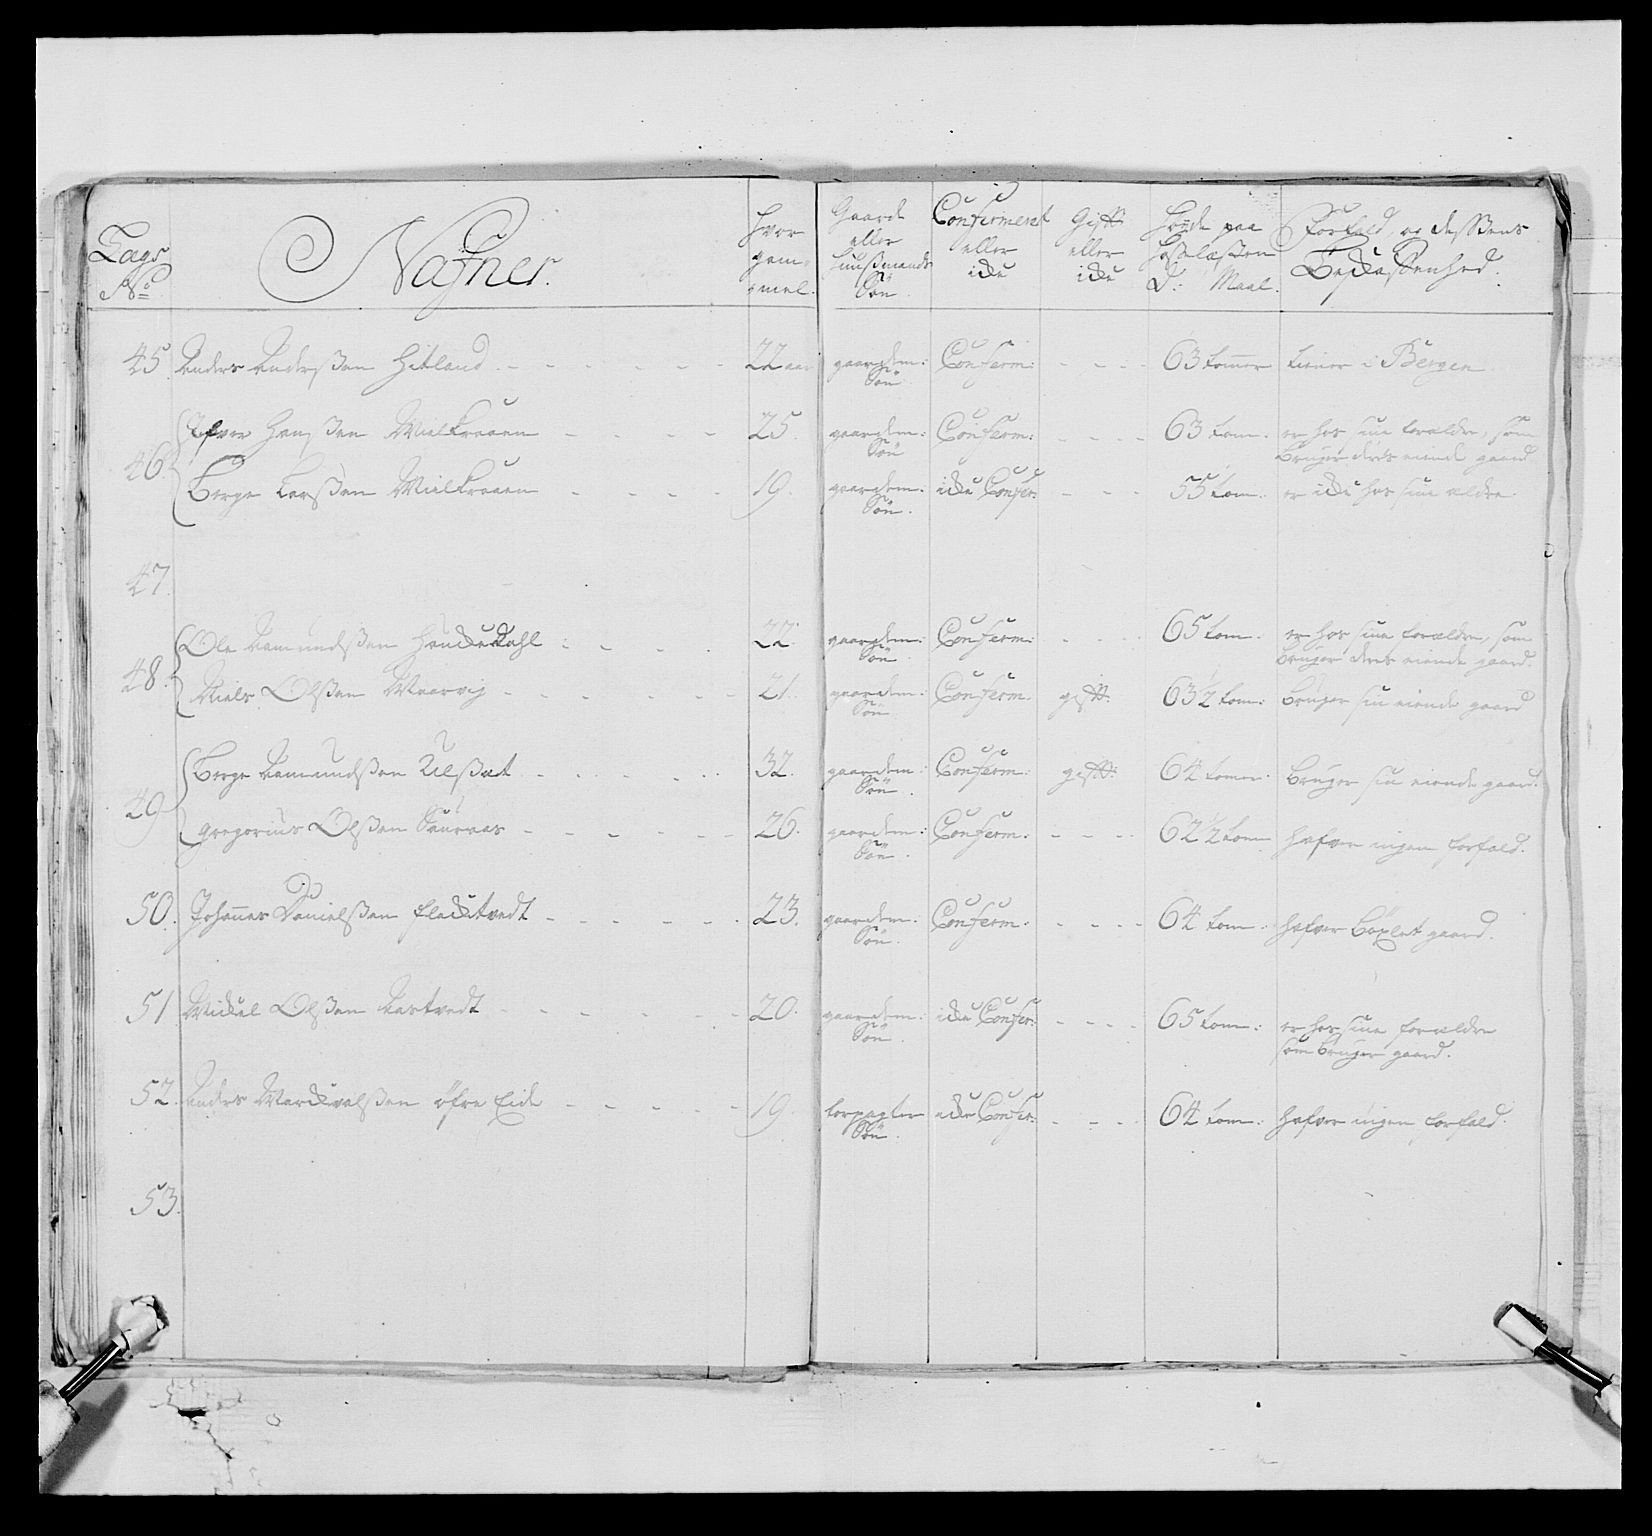 Lægs No Nafner. Hvor gam= mel. Gaard eller Huusmands Søn Confirmeret eller icke Gift eller icke Høyde paa Hoselæsten D: Maal. Forfald, og desßens Beskaffenhed.
45 Anders Anderßen Hitland - - - - - - - 22 aar gaardem: Søn Conferm: - - - - 63 tommer tiener i Bergen
46 Ifver Hanßen Mielkraaen - - - - 25. gaardem: Søn Conferm: - - - - 63 tom. er hos sine foreldre, som
bruger deres eiende gaard
Børge Larßen Mielkraaen - - - - 19. gaardem: Søn icke Confer: - - - 55 tom. er icke hos sine ældre.
47.
48. Ole Aamundßen Hauckedahl - - - 22. gaardem: Søn Conferm: - - - 65 tom. er hos sine foreldre, som
bruger deres eiende gaard.
Niels Olßen Waarvig - - - - - - - 21. gaardem: Søn Conferm. gift. 63 1/2 tom: bruger sin eiende gaard
49 Børge Aamundßen Ulßæt - - - - - - 32. gaardem: Søn. Conferm. gift: 64 tomer. bruger sin eiende gaard.
Gregorius Olßen Sauraas - - - - - - 26. gaardem: Søn. Conferm: - - - - 62 1/2 tom hafver ingen forfald.
50. Johannes Danielßen Flecketvedt - - - - - - 23. gaardem: Søn. Conferm: - - - - 64 tom: hafver böxlet gaard.
51 Mickel Olßen Aastvedt - - - - - - - 20. gaardem: Søn. icke Confer: - - - - 65 tom: er hos sine foreldre
som bruger gaard.
52. Anders Marckvalßen øfre Eide - - - - - - 19. forpagter Søn. icke Confer: - - - - 64 tom: hafver ingen forfald.
53.